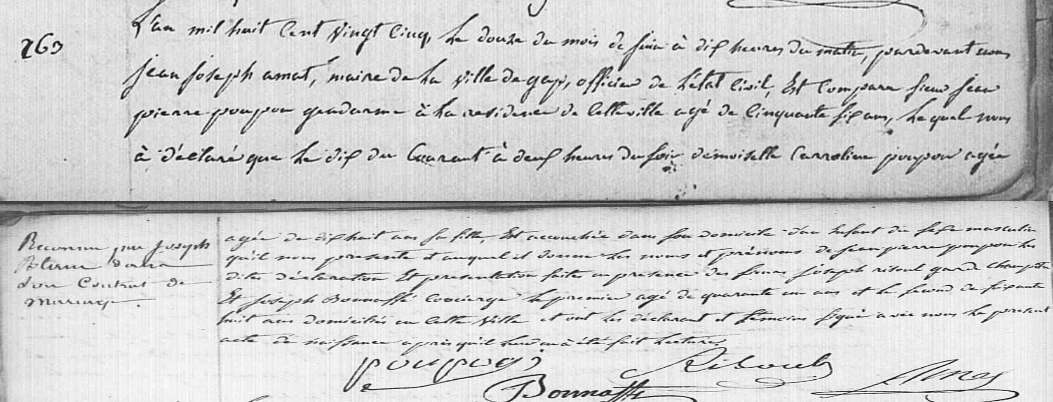 263
L'an mil huit Cent vingt Cinq, Le douze du mois de juin à dix heures du matin, pardevant nous
jean joseph amat, maire de La ville de gap, officier de L'état Civil, Est Comparu sieur jean
pierre poupon gendarme à La residence de Cette ville agé de Cinquante six ans, Lequel nous
à déclaré que Le dix du Courant à deux heures du soir demoiselle Carroline poupon agée
Reconnu par joseph
dans
Son Contrat de
mariage.
agée de dix huit ans sa fille, Est accouchée dans son domicile d'un Enfant du sexe masculin
qu'il nous presente et auquel il donne Les noms et prénoms de jean pierre poupon Les
dites déclaration Et présentation faites en presence des sieurs joseph garde champetre
Et joseph Bonnaffé Concierge Le premier agé de quarante un ans et Le second de soixante
huit ans domiciliés en Cette ville et ont Les déclarant et témoins signé avec nous Le présent
acte de naissance après qu'il leur en à été fait Lecture.
poupon
Bonnaffé
Amat